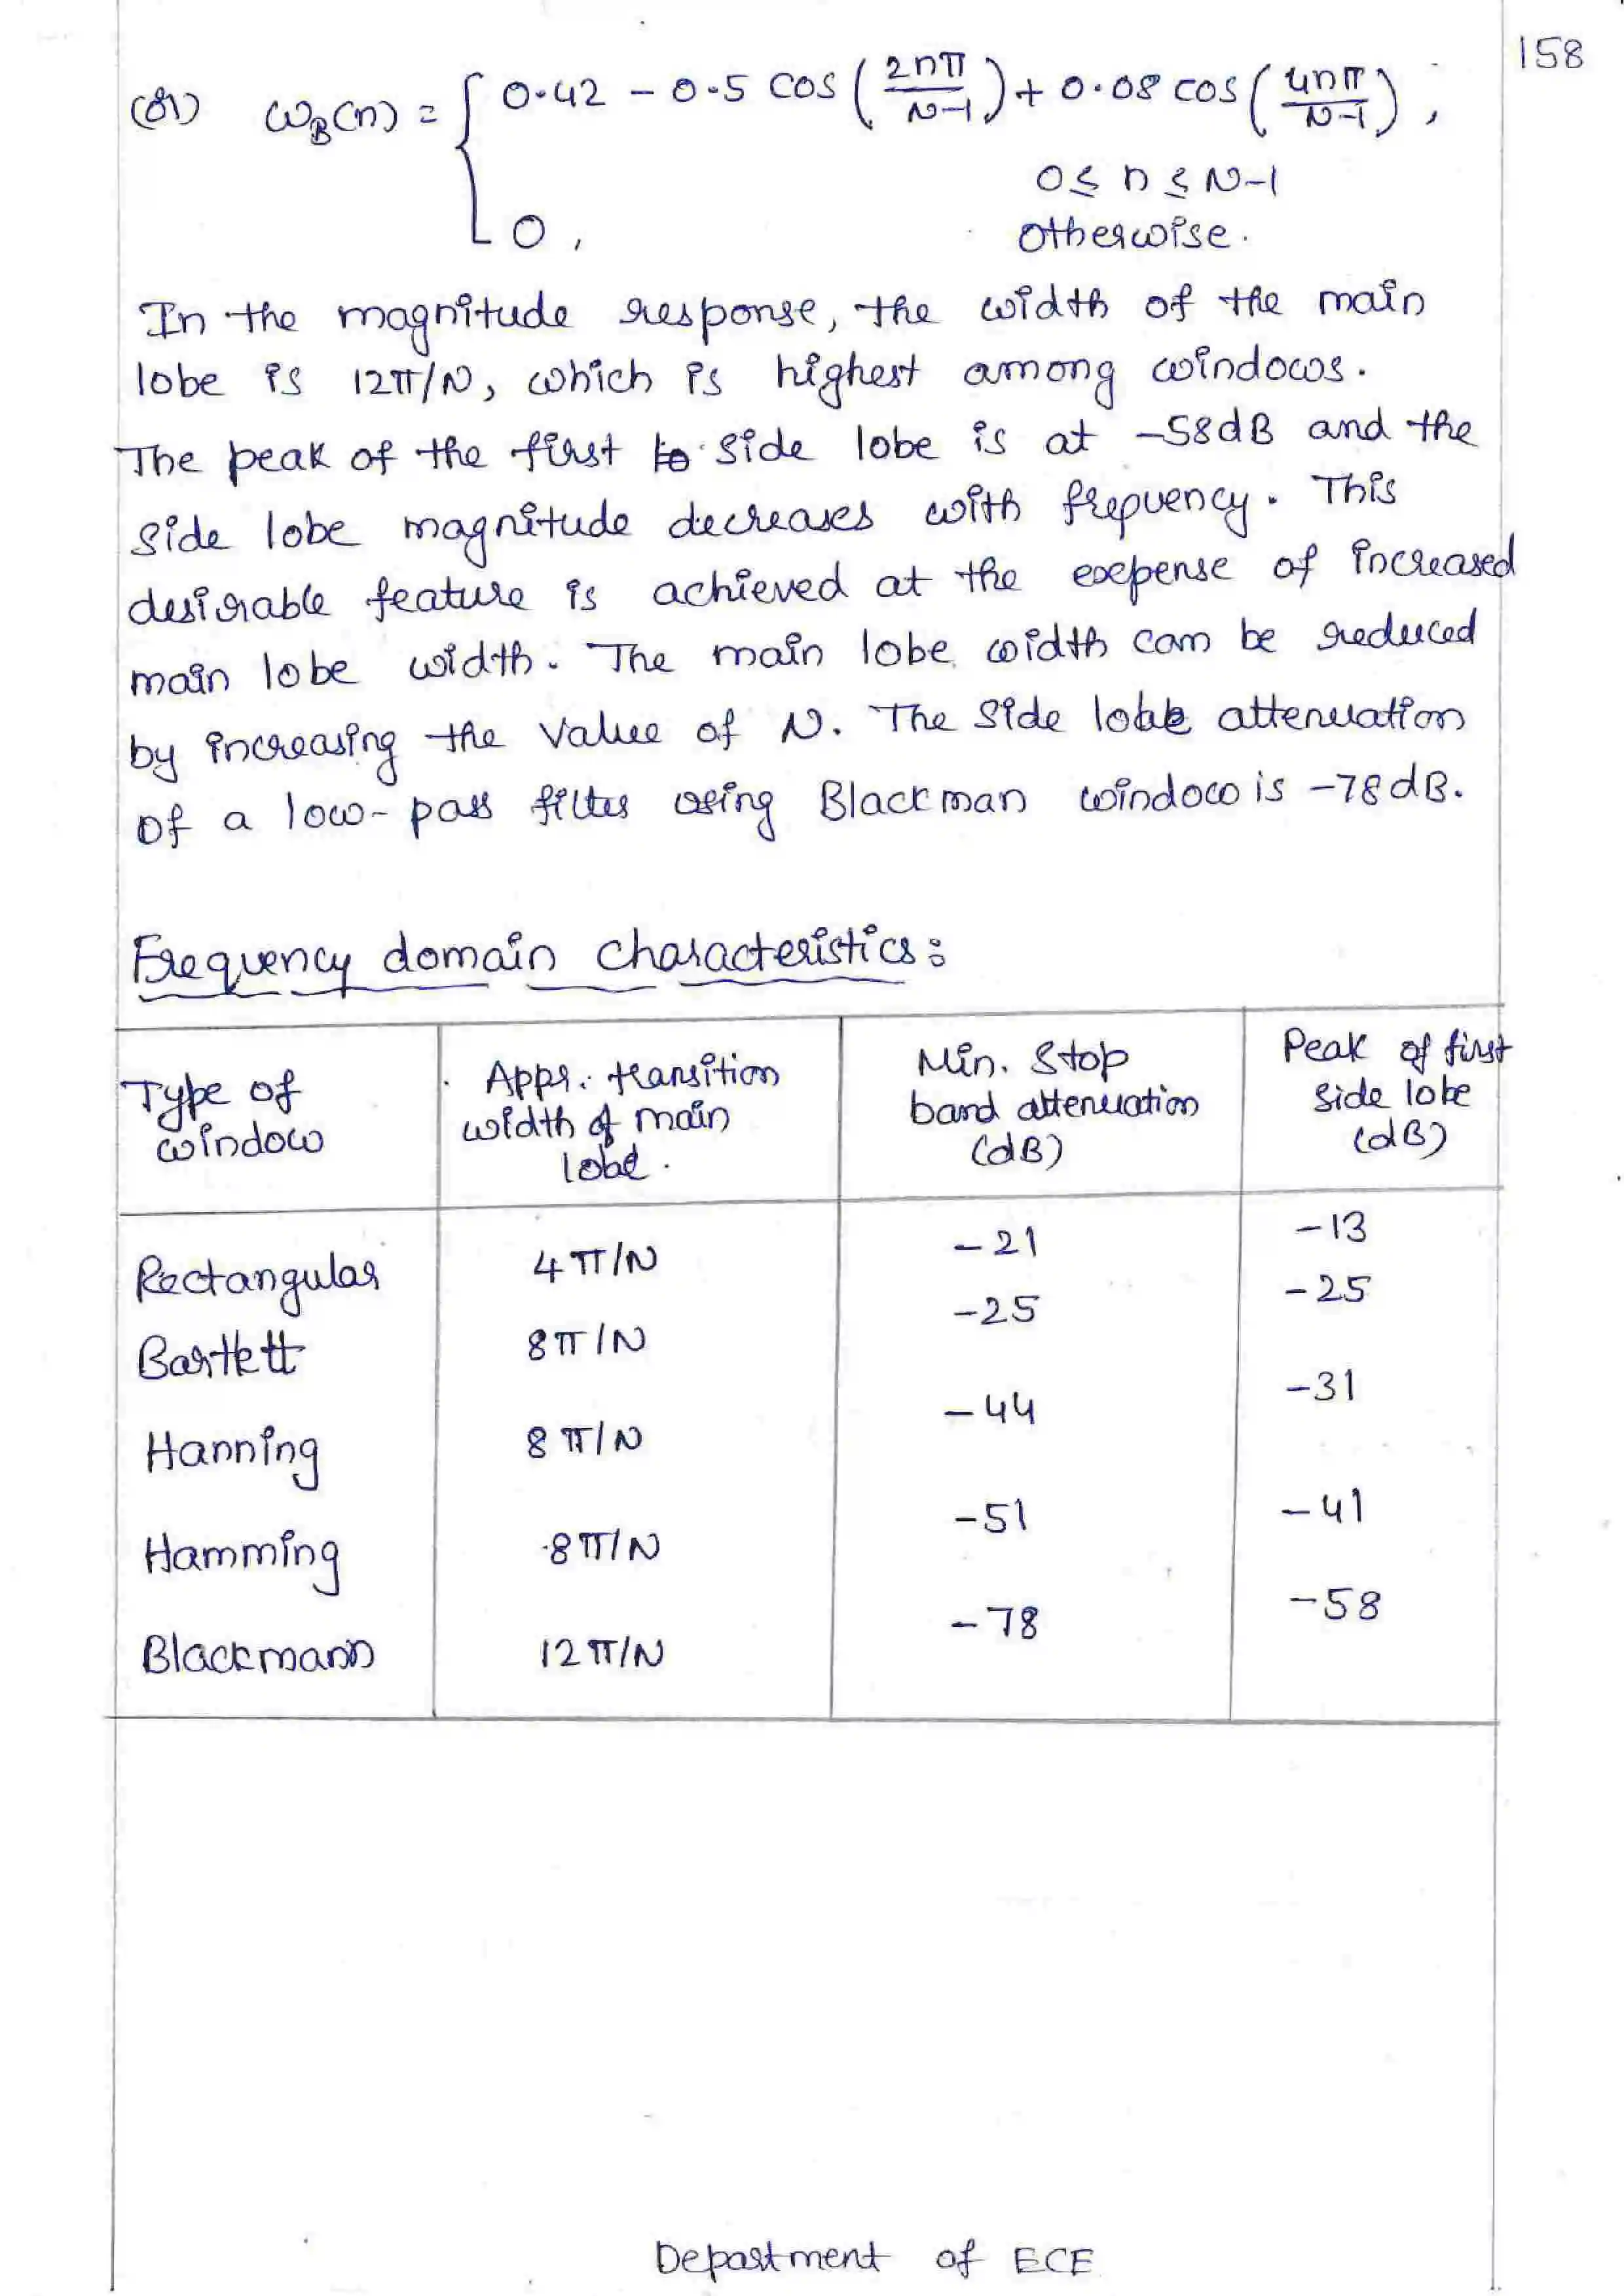 158
(or) ω_B(n) = { 0.42 - 0.5 cos ( 2nπ / N-1 ) + 0.08 cos ( 4nπ / N-1 ) ,
0 ≤ n ≤ N-1
0 , otherwise.
In the magnitude response, the width of the main
lobe is 12π/N, which is highest among windows.
The peak of the first side lobe is at -58dB and the
side lobe magnitude decreases with frequency. This
desirable feature is achieved at the expense of increased
main lobe width. The main lobe width can be reduced
by increasing the value of N. The side lobe attenuation
of a low-pass filter using Blackman window is -78dB.
Frequency domain characteristics:
Type of window | Appr. transition width of main lobe. | Min. Stop band attenuation (dB) | Peak of first side lobe (dB)
Rectangular | 4π/N | -21 | -13
Bartlett | 8π/N | -25 | -25
Hanning | 8π/N | -44 | -31
Hamming | 8π/N | -51 | -41
Blackmann | 12π/N | -78 | -58
Department of ECE